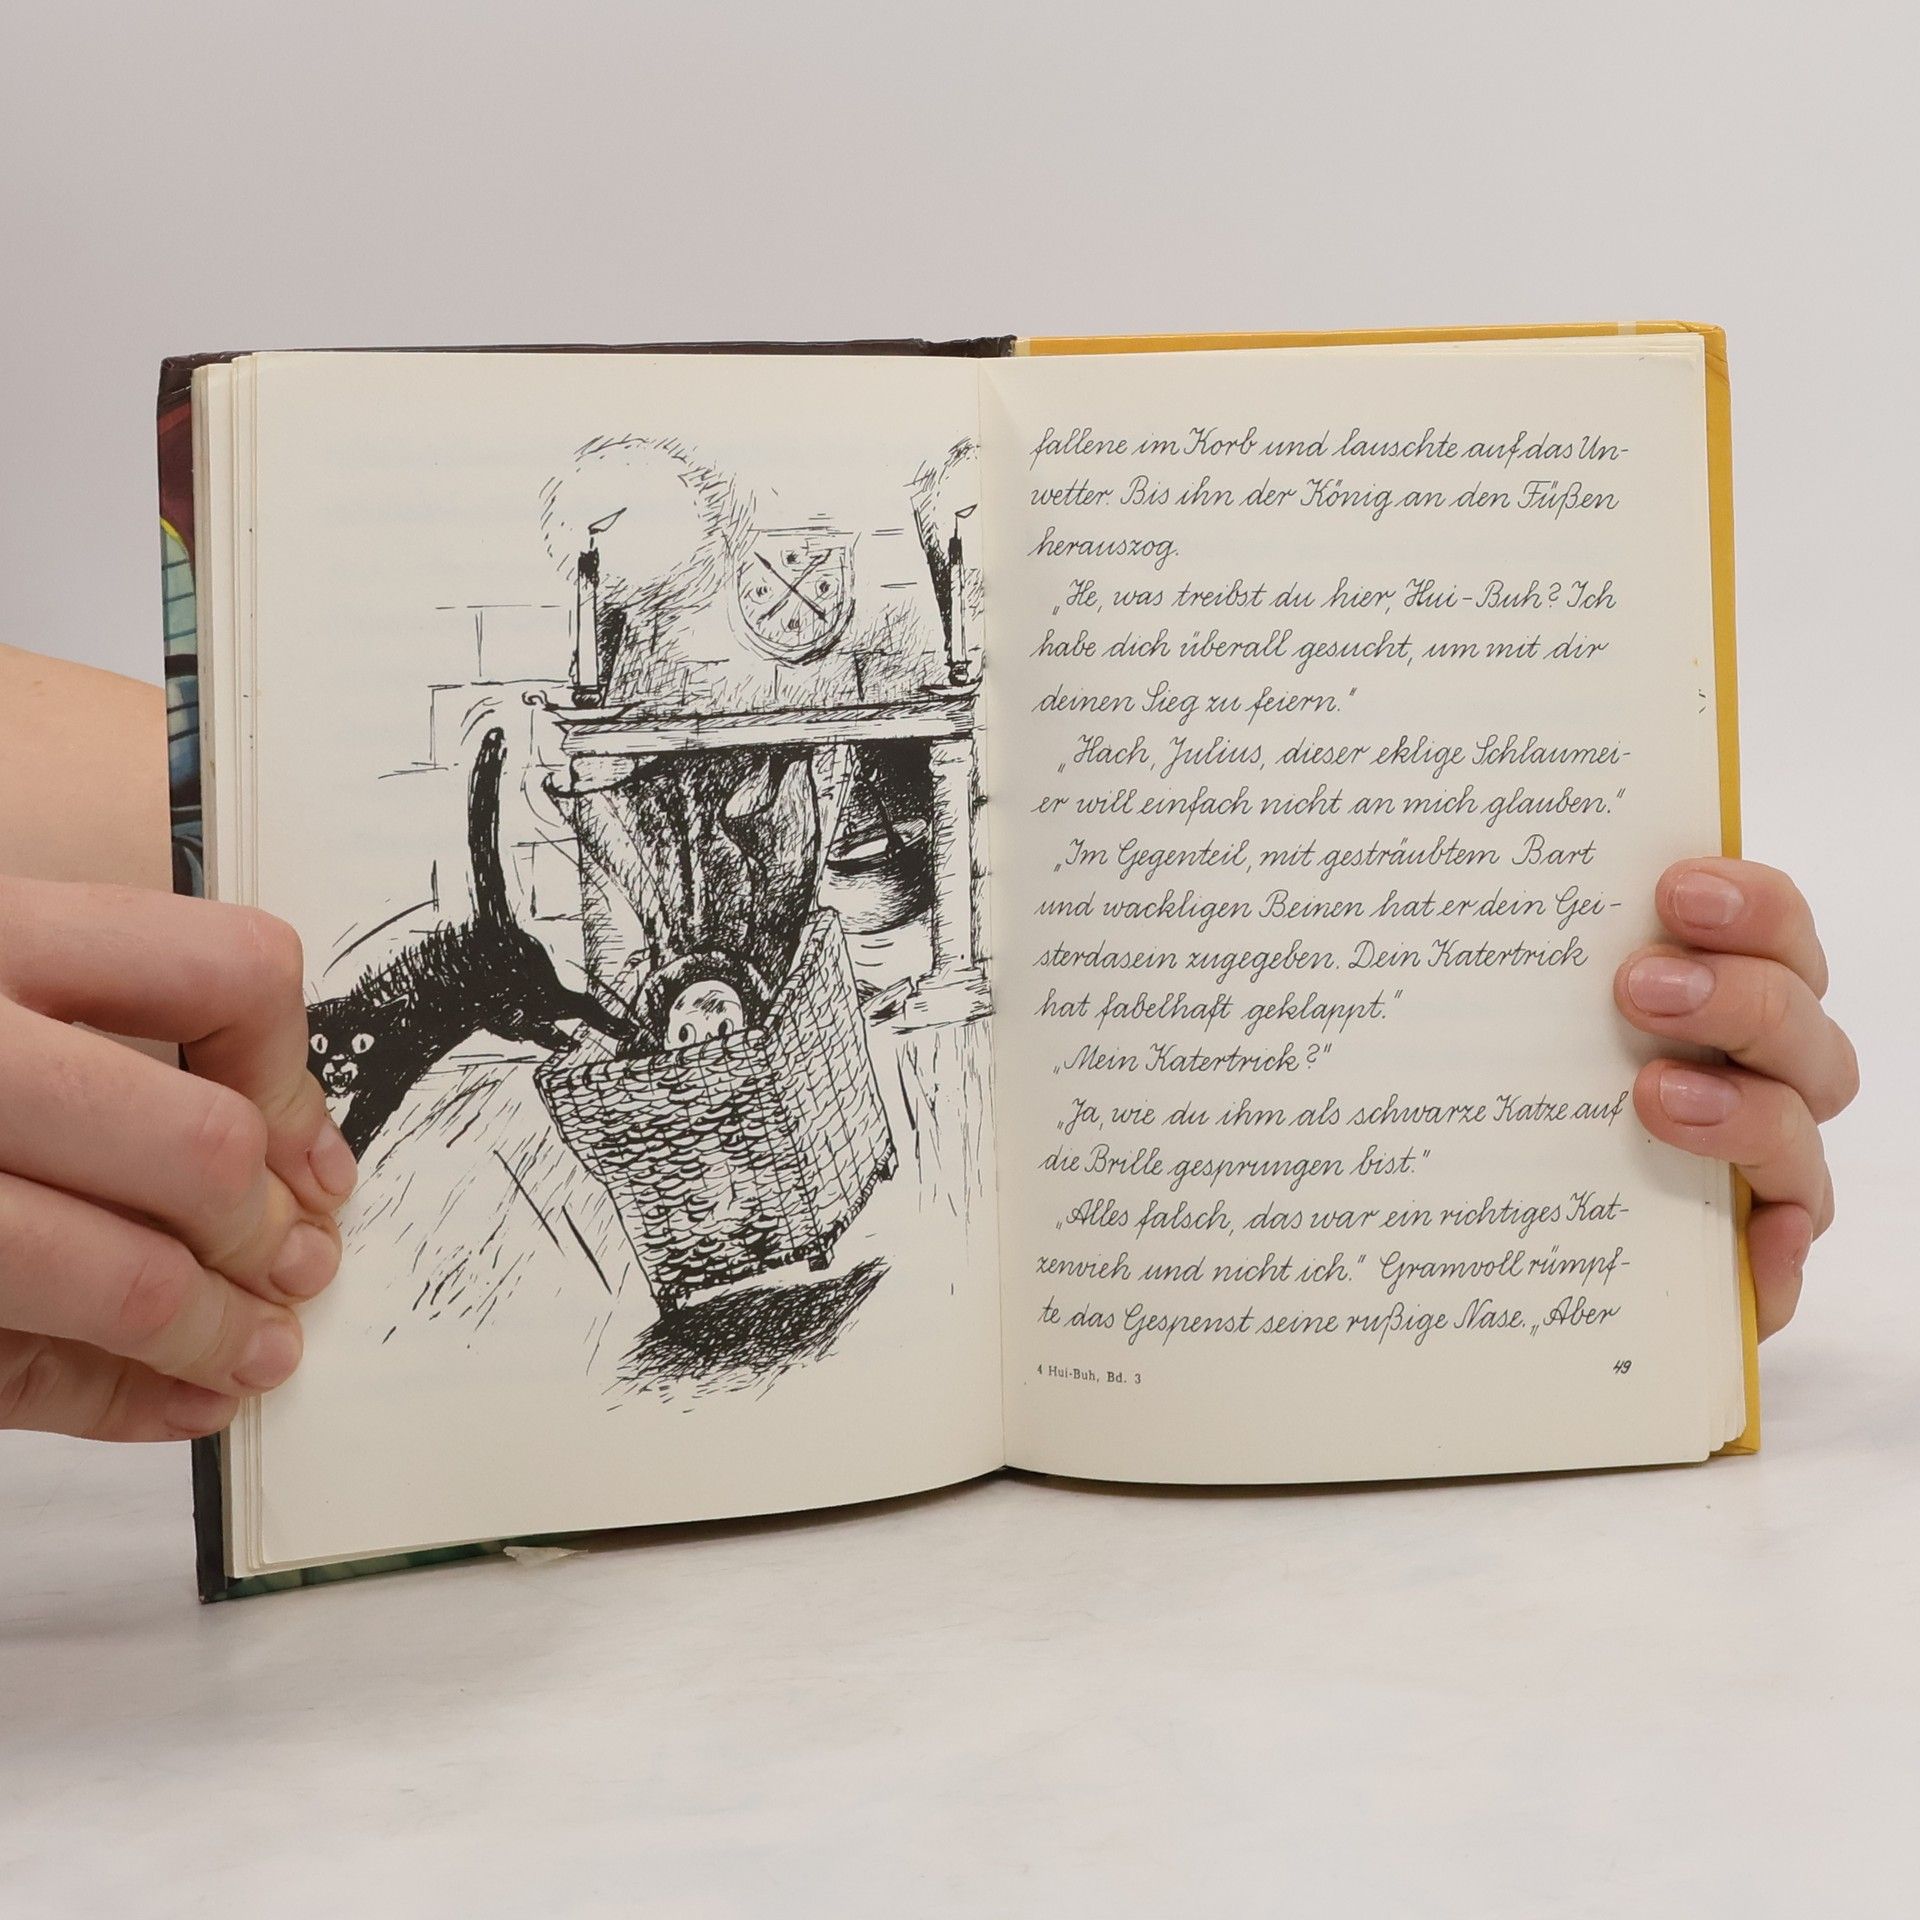 fallene im Korb und lauschte auf das Un-
wetter. Bis ihn der König an den Füßen
herauszog.
„He, was treibst du hier, Hui-Buh? Ich
habe dich überall gesucht, um mit dir
deinen Sieg zu feiern.“
„Hach, Julius, dieser eklige Schlaumei-
er will einfach nicht an mich glauben.“
„Im Gegenteil, mit gesträubtem Bart
und wackligen Beinen hat er dein Gei-
sterdasein zugegeben. Dein Katertrick
hat fabelhaft geklappt.“
„Mein Katertrick?“
„Ja, wie du ihm als schwarze Katze auf
die Brille gesprungen bist.“
„Alles falsch, das war ein richtiges Kat-
zenvieh und nicht ich.“ Gramvoll rümpf-
te das Gespenst seine rußige Nase. „Aber
4 Hui-Buh, Bd. 3
49